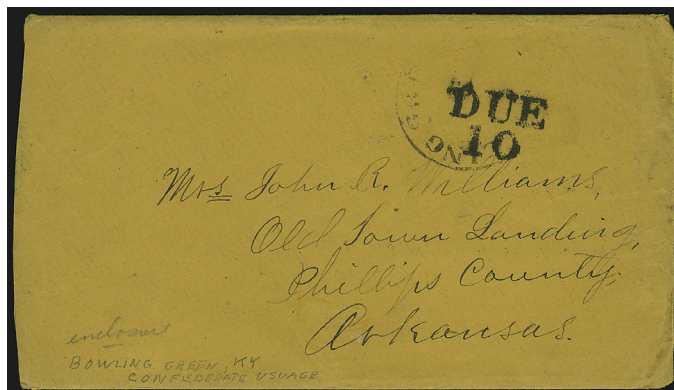 DUE
10
Mrs John R. Williams,
Old Town Landing,
Phillips County,
Arkansas.
enclosure
BOWLING GREEN, KY
CONFEDERATE USUAGE